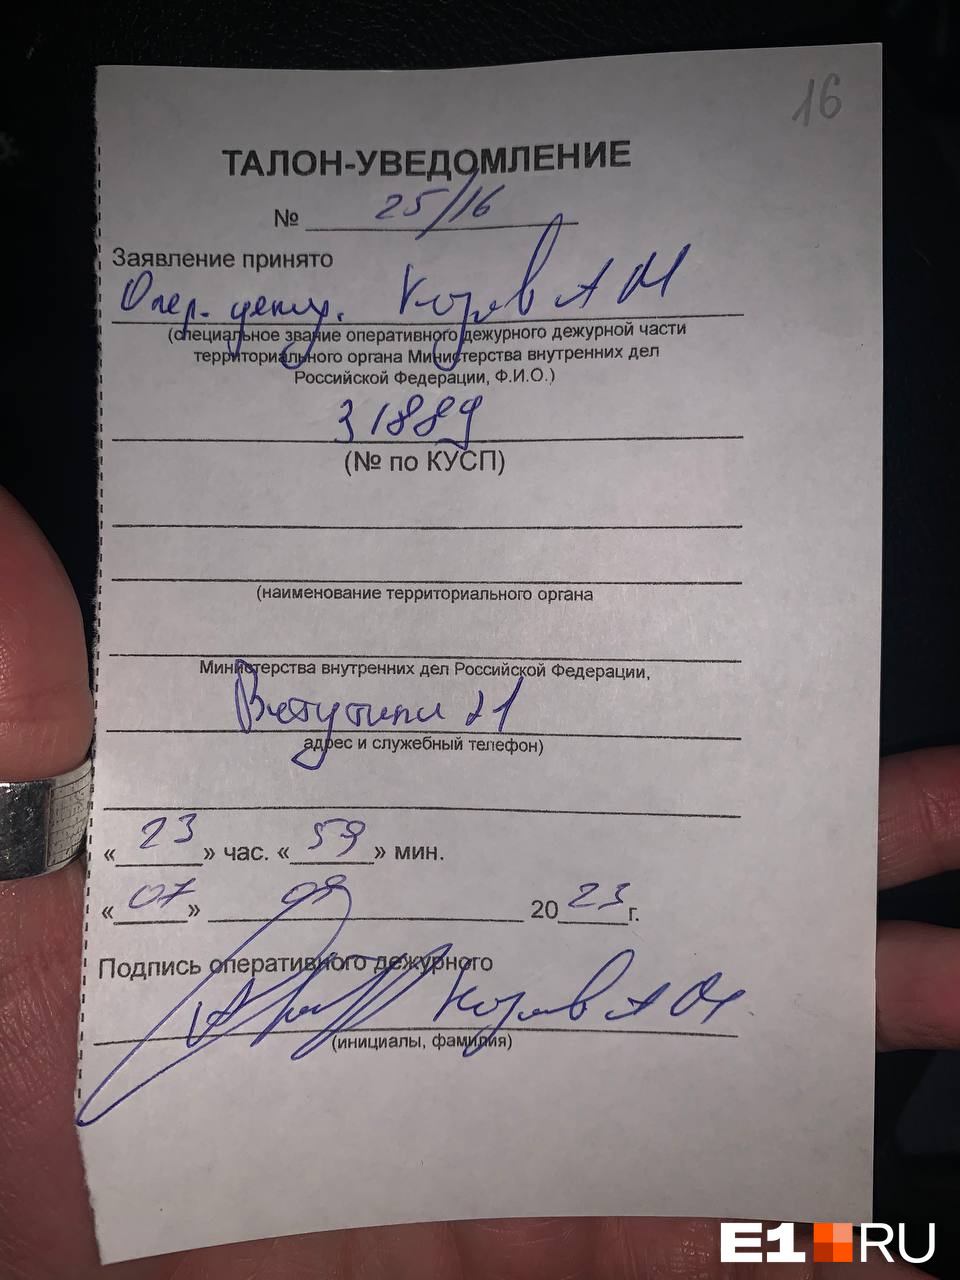 16
ТАЛОН-УВЕДОМЛЕНИЕ
№ 25/16
Заявление принято
Опер. дежур. Козлов А М
(специальное звание оперативного дежурного дежурной части
территориального органа Министерства внутренних дел
Российской Федерации, Ф.И.О.)
31889
(№ по КУСП)
(наименование территориального органа
Министерства внутренних дел Российской Федерации,
21
адрес и служебный телефон)
«23» час. «59» мин.
«07» 09 2023г.
Подпись оперативного дежурного
Козлов А М
(инициалы, фамилия)
E1 RU